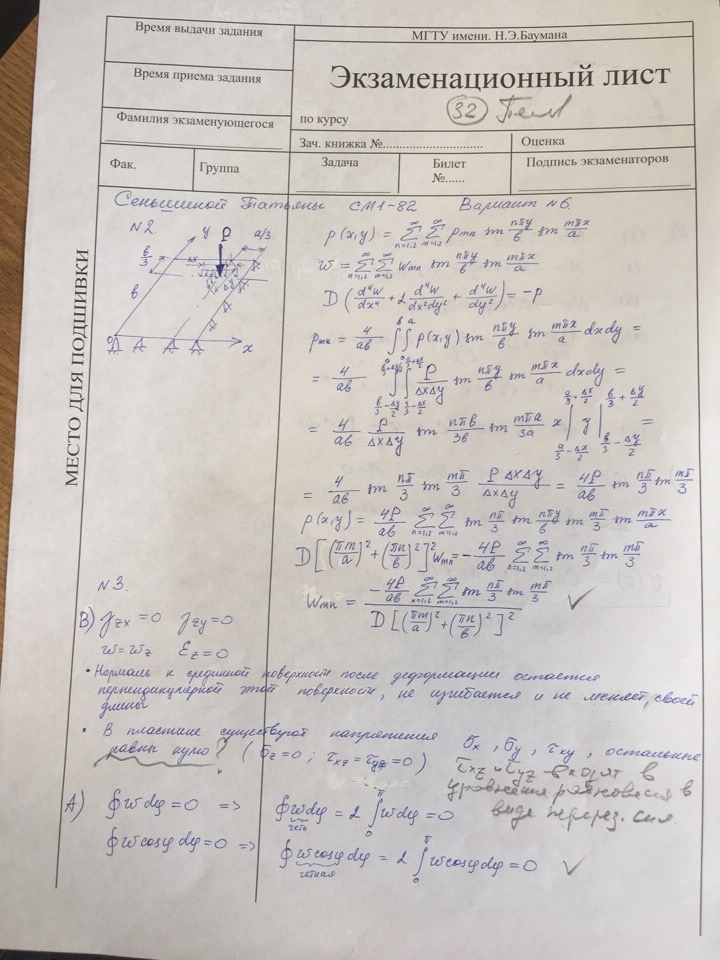 Время выдачи задания
МГТУ имени. Н.Э.Баумана
Время приема задания
Экзаменационный лист
Фамилия экзаменующегося
по курсу
32
Зач. книжка №
Оценка
Фак.
Группа
Задача
Билет
№......
Подпись экзаменаторов
МЕСТО ДЛЯ ПОДШИВКИ
Сеньшиной Татьяны СМ1-82 Вариант №6.
№2
y P a/3
b/3
Δx
Δy
b
0 x
p(x,y) = ∑_{n=1,2}^∞ ∑_{m=1,2}^∞ p_mn sin nπy/b sin mπx/a
w = ∑_{n=1,2}^∞ ∑_{m=1,2}^∞ w_mn sin nπy/b sin mπx/a
D (d⁴w/dx⁴ + 2 d⁴w/dx²dy² + d⁴w/dy²) = -p
p_mn = 4/ab ∫_0^b ∫_0^a p(x,y) sin nπy/b sin mπx/a dxdy =
= 4/ab ∫_{b/3-Δy/2}^{b/3+Δy/2} ∫_{a/3-Δx/2}^{a/3+Δx/2} P/ΔxΔy sin nπy/b sin mπx/a dxdy =
= 4/ab P/ΔxΔy sin nπb/3b sin mπa/3a x|_{a/3-Δx/2}^{a/3+Δx/2} y|_{b/3-Δy/2}^{b/3+Δy/2} =
= 4/ab sin nπ/3 sin mπ/3 PΔxΔy/ΔxΔy = 4P/ab sin nπ/3 sin mπ/3
p(x,y) = 4P/ab ∑_{n=1,2}^∞ ∑_{m=1,2}^∞ sin nπ/3 sin nπy/b sin mπ/3 sin mπx/a
D[(πm/a)² + (πn/b)²]² w_mn = - 4P/ab ∑_{n=1,2}^∞ ∑_{m=1,2}^∞ sin nπ/3 sin mπ/3
w_mn = -4P/ab ∑_{n=1,2}^∞ ∑_{m=1,2}^∞ sin nπ/3 sin mπ/3 / D[(πm/a)² + (πn/b)²]² ✓
№3.
В) γ_zx = 0 γ_zy = 0
w = w_z ε_z = 0
• Нормаль к срединной поверхности после деформации остается
перпендикулярной этой поверхности, не изгибается и не меняет своей
длины
• В пластине существуют напряжения σ_x, σ_y, τ_xy, остальные
равны нулю? (σ_z = 0; τ_xz = τ_yz = 0)
τ_xz и τ_yz входят в
уравнения равновесия в
виде перерез. сил.
А) ∮wdφ = 0 => ∮wdφ = 2∫_0^π wdφ = 0
четн
∮wcosφdφ = 0 => ∮wcosφdφ = 2∫_0^π wcosφdφ = 0 ✓
четная